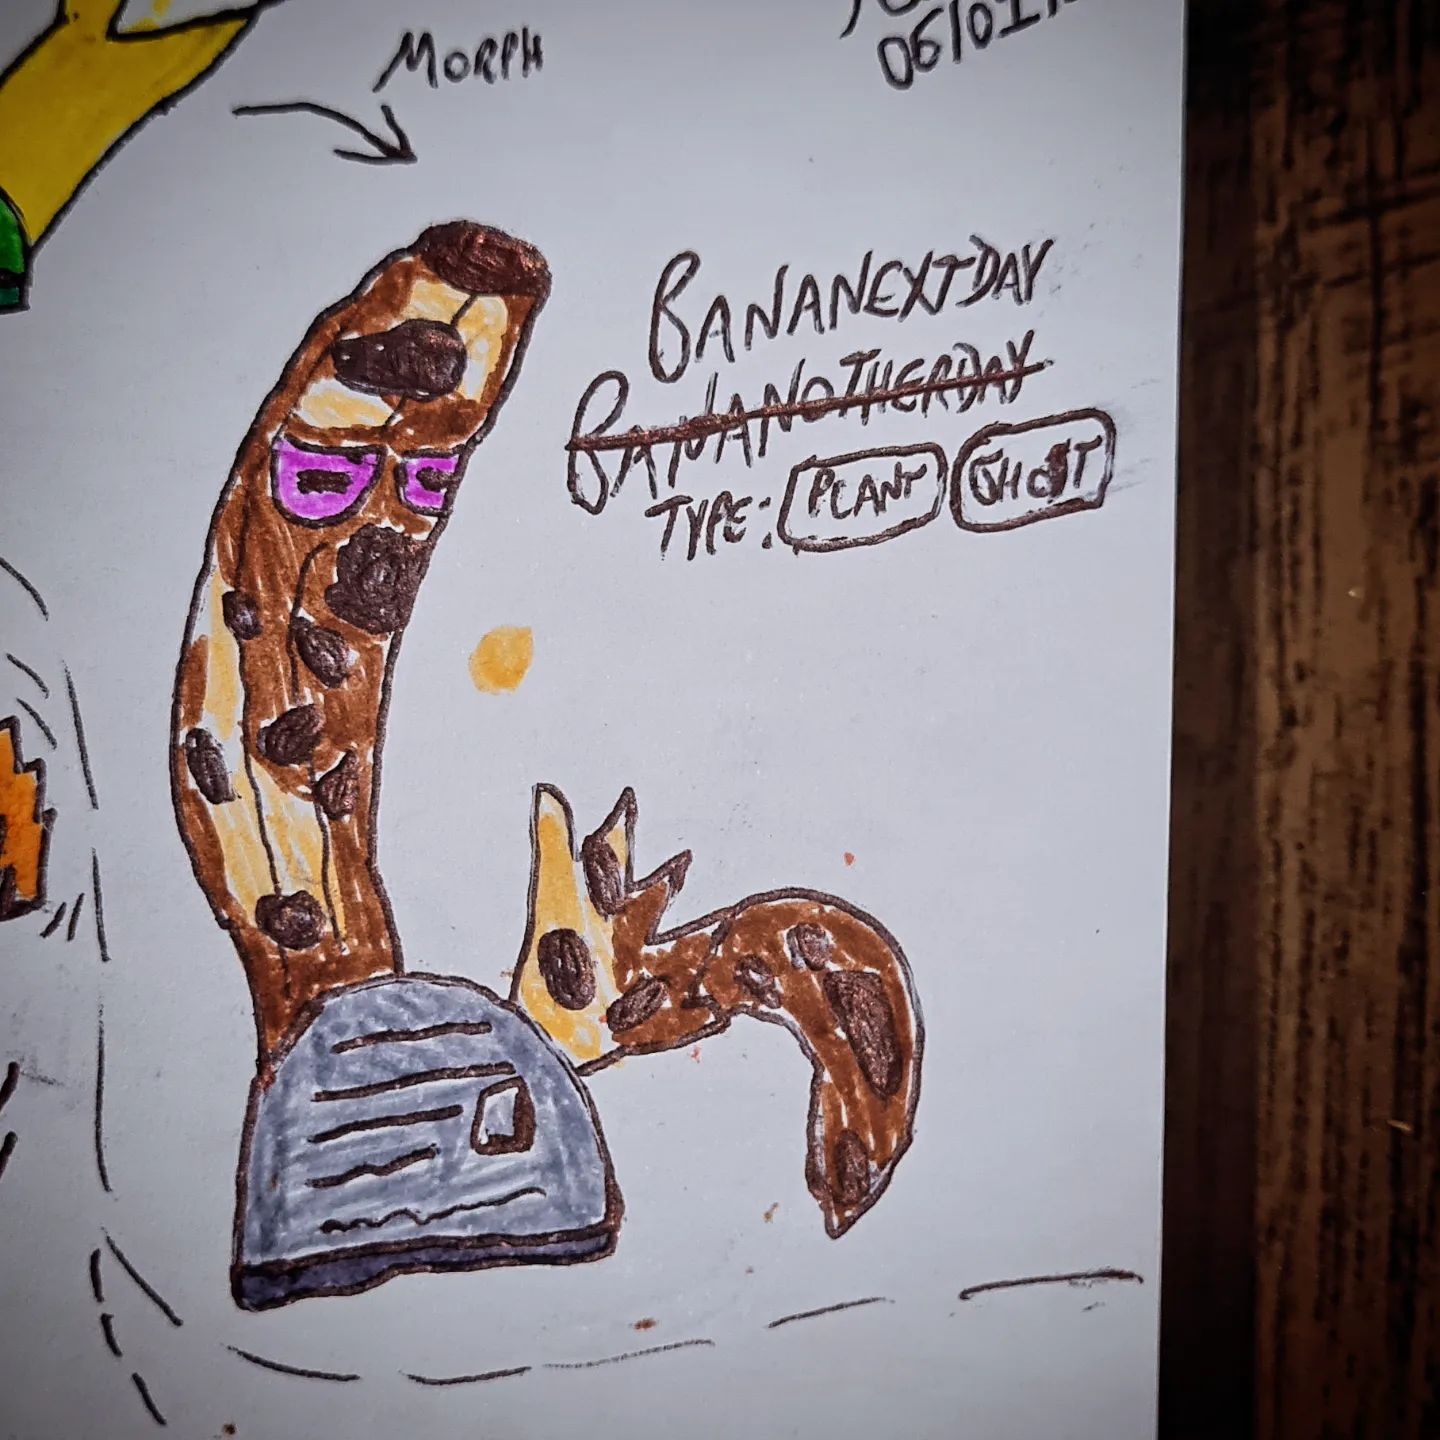 MORPH
06/01
BANANEXTDAY
BANANOTHERDAY
TYPE: PLANT GHOST